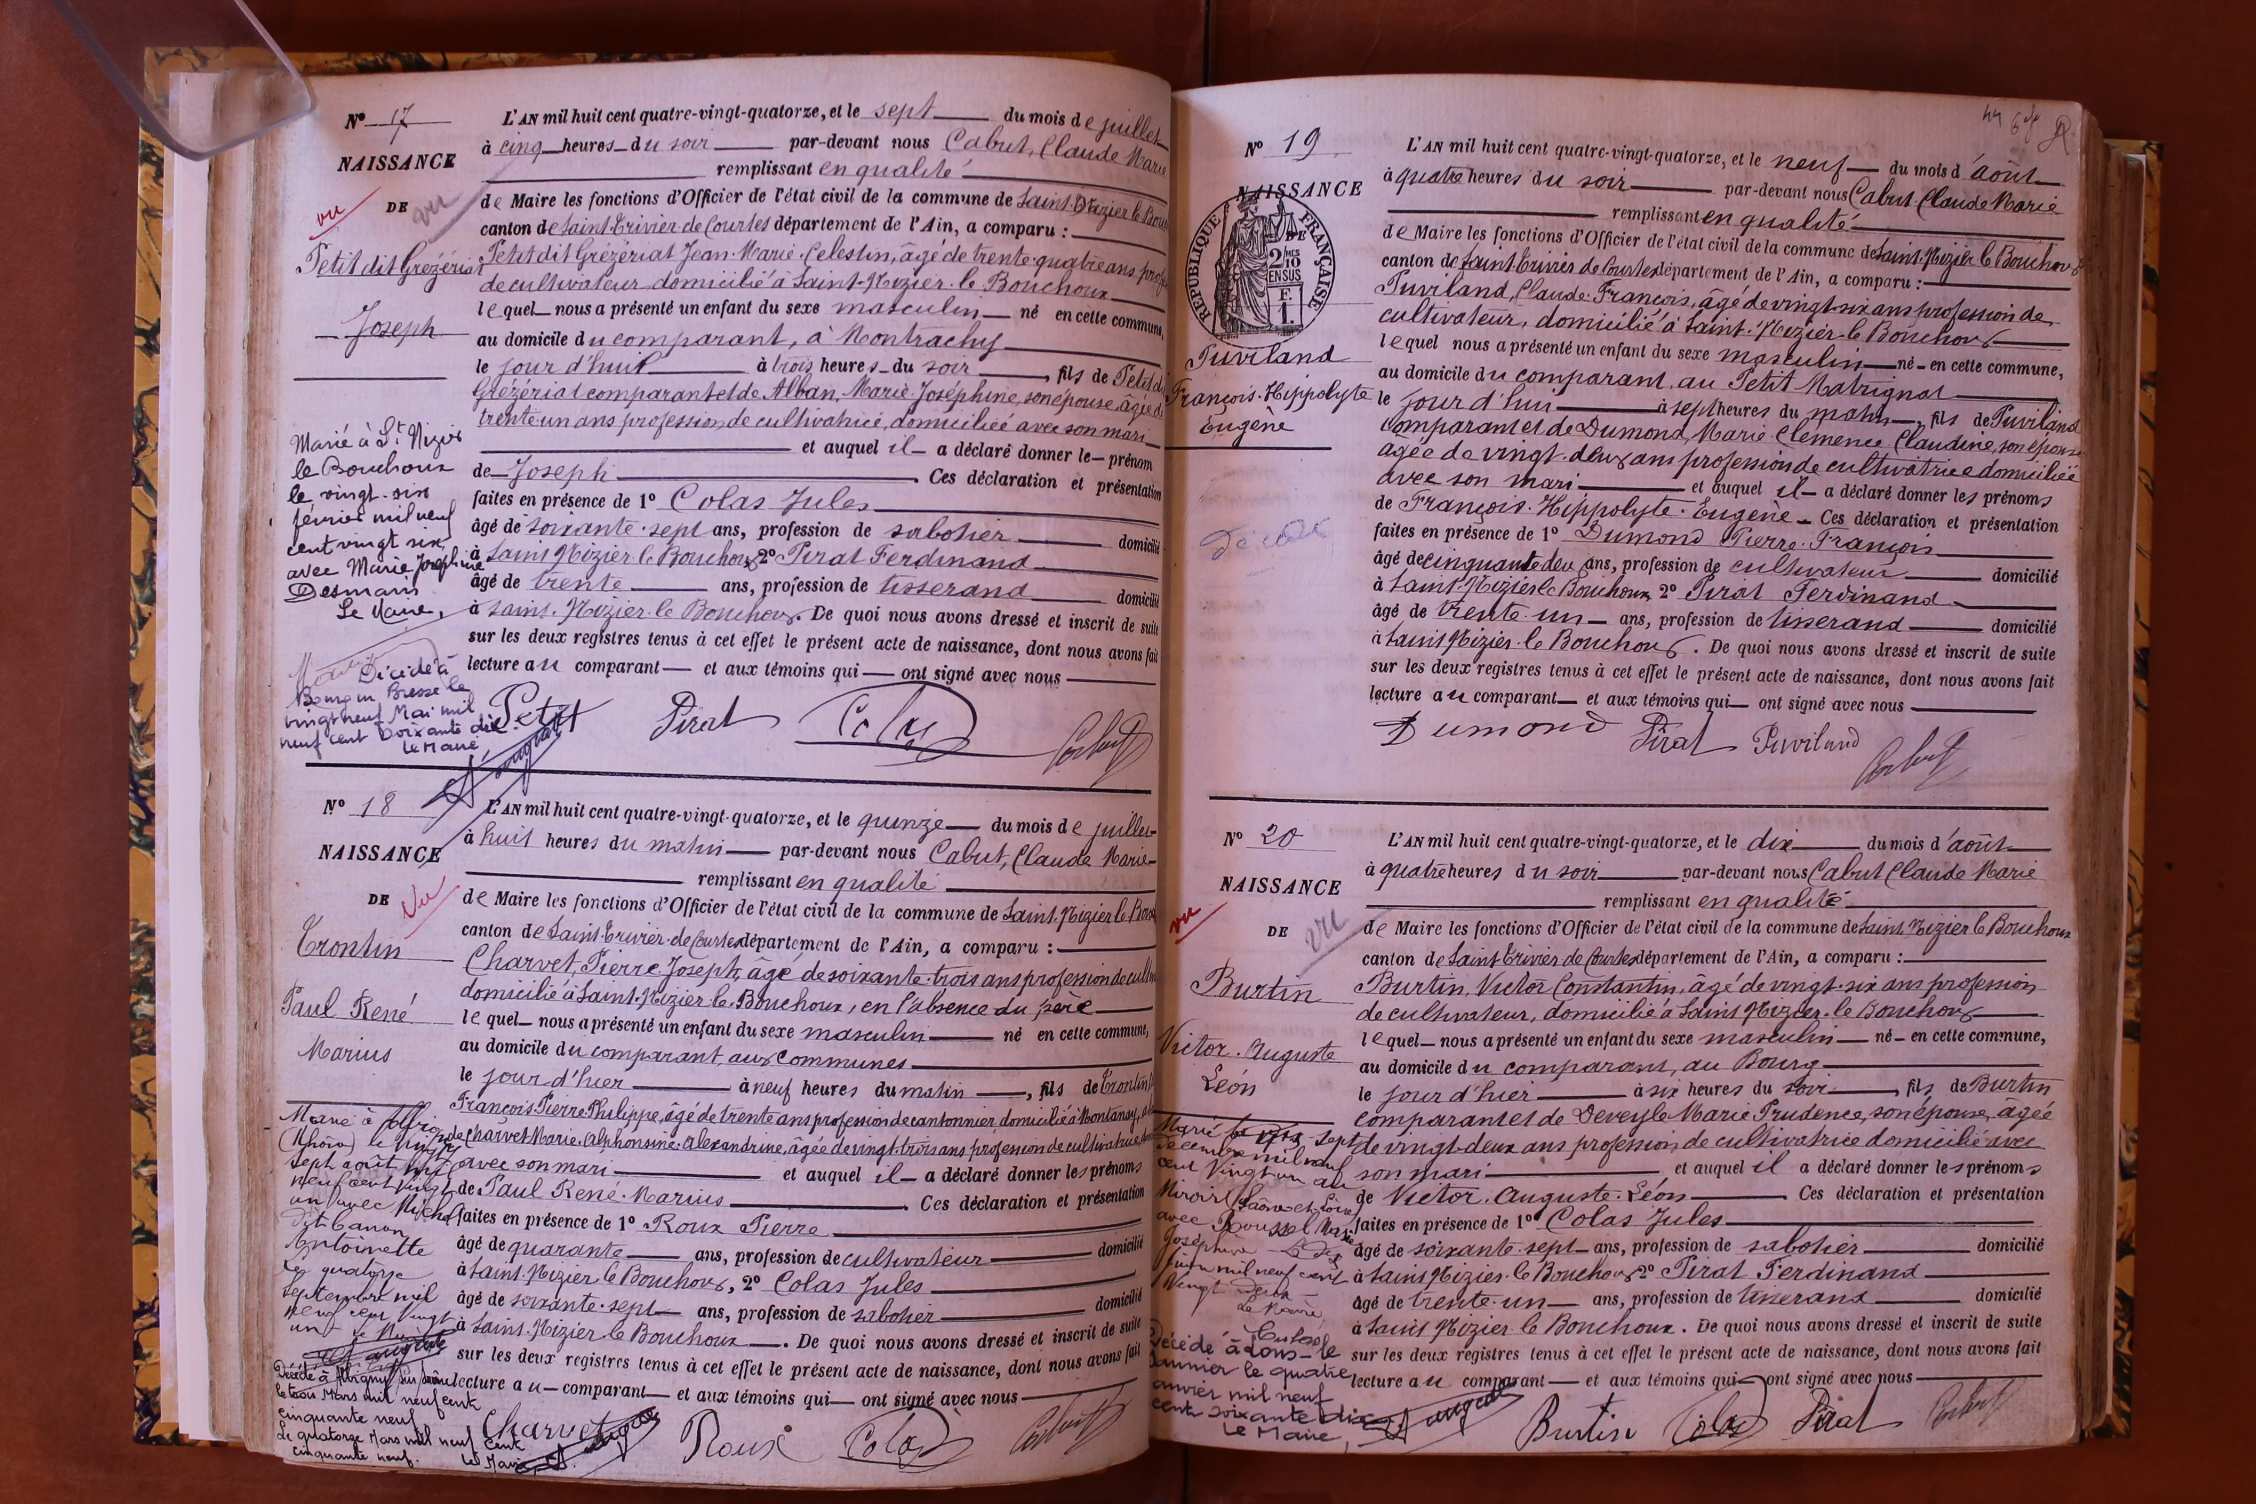 Nº 17
NAISSANCE
DE
vu
vu
Petit dit Grézériat
Joseph
Marié à St Nizier
le Bouchoux
le vingt-six
février mil neuf
cent vingt six
avec Marie Joséphine
Desmaris
Le Maire,
Décédé à
Bourg en Bresse le
vingt neuf Mai mil
neuf cent soixante dix
Le Maire,
L'AN mil huit cent quatre-vingt-quatorze, et le sept du mois de juillet
à cinq heures du soir par-devant nous Cabut, Claude Marie
remplissant en qualité
de Maire les fonctions d'Officier de l'état civil de la commune de Saint-Nizier le Bouch
canton de Saint-Trivier de Courtes département de l'Ain, a comparu :
Petit dit Grézériat Jean-Marie-Célestin, âgé de trente quatre ans prof
de cultivateur domicilié à Saint-Nizier-le Bouchoux
lequel nous a présenté un enfant du sexe masculin né en cette commune,
au domicile du comparant, à Montrachy
le jour d'hui à trois heures du soir, fils de Petit dit
Grézériat comparant et de Alban, Marie Joséphine, son épouse, âgée de
trente un ans profession de cultivatrice, domiciliée avec son mari
et auquel il a déclaré donner le prénom
de Joseph. Ces déclaration et présentation
faites en présence de 1º Colas Jules
âgé de soixante-sept ans, profession de sabotier domicilié
à Saint Nizier le Bouchoux 2º Pirat Ferdinand
âgé de trente ans, profession de tisserand domicilié
à Saint-Nizier-le Bouchoux. De quoi nous avons dressé et inscrit de suite
sur les deux registres tenus à cet effet le présent acte de naissance, dont nous avons fait
lecture au comparant et aux témoins qui ont signé avec nous
Petit Pirat Colas Cabut
Nº 18
NAISSANCE
DE
Vu
Trontin
Paul René
Marius
Marié à Albigny
(Rhône) le vingt
sept août mil
neuf cent vingt
un avec Michel
dit Canon
Antoinette
Le quatorze
Septembre mil
neuf cent vingt
un Le Maire
Décédé à Albigny sur Saône
le trois Mars mil neuf cent
cinquante neuf
Le quatorze Mars mil neuf cent
cinquante neuf. Le Maire
L'AN mil huit cent quatre-vingt-quatorze, et le quinze du mois de juillet
à huit heures du matin par-devant nous Cabut, Claude Marie
remplissant en qualité
de Maire les fonctions d'Officier de l'état civil de la commune de Saint-Nizier le Bouch
canton de Saint-Trivier-de Courtes département de l'Ain, a comparu :
Charvet, Pierre Joseph, âgé de soixante-trois ans profession de cultiv
domicilié à Saint-Nizier-le-Bouchoux, en l'absence du père
lequel nous a présenté un enfant du sexe masculin né en cette commune,
au domicile du comparant, aux Communes
le jour d'hier à neuf heures du matin, fils de Trontin
François Pierre Philippe, âgé de trente ans profession de cantonnier domicilié à Montanay, et
de Charvet Marie-Alphonsine-Alexandrine, âgée de vingt-trois ans profession de cultivatrice
avec son mari et auquel il a déclaré donner les prénoms
de Paul René-Marius. Ces déclaration et présentation
faites en présence de 1º Roux Pierre
âgé de quarante ans, profession de cultivateur domicilié
à Saint-Nizier-le Bouchoux, 2º Colas Jules
âgé de soixante-sept ans, profession de sabotier domicilié
à Saint-Nizier-le Bouchoux. De quoi nous avons dressé et inscrit de suite
sur les deux registres tenus à cet effet le présent acte de naissance, dont nous avons fait
lecture au comparant et aux témoins qui ont signé avec nous
Charvet Roux Colas Cabut
Nº 19
NAISSANCE
DE
RÉPUBLIQUE FRANÇAISE
2/10 MES
EN SUS
F.
1.
Puviland
François-Hippolyte
Eugène
Décédé
L'AN mil huit cent quatre-vingt-quatorze, et le neuf du mois d'août
à quatre heures du soir par-devant nous Cabut Claude Marie
remplissant en qualité
de Maire les fonctions d'Officier de l'état civil de la commune de Saint-Nizier le Bouchoux
canton de Saint-Trivier de Courtes département de l'Ain, a comparu :
Puviland, Claude-François, âgé de vingt-six ans profession de
cultivateur, domicilié à Saint-Nizier-le Bouchoux
lequel nous a présenté un enfant du sexe masculin né en cette commune,
au domicile du comparant, au Petit Matrignat
le jour d'hui à sept heures du matin, fils de Puviland
comparant et de Dumond, Marie Clémence Claudine, son épouse
âgée de vingt-deux ans profession de cultivatrice domiciliée
avec son mari et auquel il a déclaré donner les prénoms
de François-Hippolyte-Eugène. Ces déclaration et présentation
faites en présence de 1º Dumond Pierre-François
âgé de cinquante deux ans, profession de cultivateur domicilié
à Saint-Nizier le Bouchoux 2º Pirat Ferdinand
âgé de trente-un ans, profession de tisserand domicilié
à Saint Nizier-le Bouchoux. De quoi nous avons dressé et inscrit de suite
sur les deux registres tenus à cet effet le présent acte de naissance, dont nous avons fait
lecture au comparant et aux témoins qui ont signé avec nous
Dumond Pirat Puviland Cabut
Nº 20
NAISSANCE
DE
vu
vu
Burtin
Victor-Auguste
Léon
Marié le dix-sept
décembre mil neuf
cent vingt un au
Miroir (Saône-et-Loire)
avec Roussel Marie
Joséphine Le dix
juin mil neuf cent
vingt deux
Le Maire,
Décédé à Lons-le
Saunier le quatre
janvier mil neuf
cent soixante dix
Le Maire,
L'AN mil huit cent quatre-vingt-quatorze, et le dix du mois d'août
à quatre heures du soir par-devant nous Cabut Claude Marie
remplissant en qualité
de Maire les fonctions d'Officier de l'état civil de la commune de Saint Nizier le Bouchoux
canton de Saint-Trivier de Courtes département de l'Ain, a comparu :
Burtin, Victor Constantin, âgé de vingt-six ans profession
de cultivateur, domicilié à Saint Nizier-le Bouchoux
lequel nous a présenté un enfant du sexe masculin né en cette commune,
au domicile du comparant, au Bourg
le jour d'hier à six heures du soir, fils de Burtin
comparant et de Deveyle Marie Prudence, son épouse, âgée
de vingt-deux ans profession de cultivatrice domicilié avec
son mari et auquel il a déclaré donner les prénoms
de Victor-Auguste-Léon. Ces déclaration et présentation
faites en présence de 1º Colas Jules
âgé de soixante-sept ans, profession de sabotier domicilié
à Saint Nizier-le Bouchoux 2º Pirat Ferdinand
âgé de trente-un ans, profession de tisserand domicilié
à Saint Nizier le Bouchoux. De quoi nous avons dressé et inscrit de suite
sur les deux registres tenus à cet effet le présent acte de naissance, dont nous avons fait
lecture au comparant et aux témoins qui ont signé avec nous
Burtin Colas Pirat Cabut